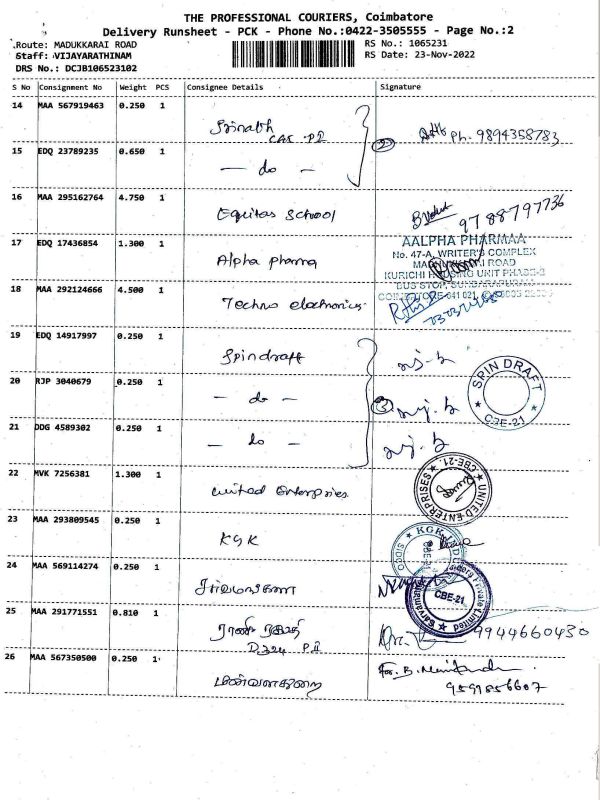 THE PROFESSIONAL COURIERS, Coimbatore
Delivery Runsheet - PCK - Phone No.:0422-3505555 - Page No.:2
Route: MADUKKARAI ROAD
RS No.: 1065231
Staff: VIJAYARATHINAM
RS Date: 23-Nov-2022
DRS No.: DCJB106523102
S No Consignment No Weight PCS Consignee Details Signature
14 MAA 567919463 0.250 1
Ph. 9894358783
15 EDQ 23789235 0.650 1
— do —
16 MAA 295162764 4.750 1
Equitas School
9788797736
17 EDQ 17436854 1.300 1
Alpha pharma
AALPHA PHARMAA
No. 47-A, WRITER'S COMPLEX
ROAD
KURICHI HOUSING UNIT PHASE-2
BUS STOP, SUNDARAPURAM
18 MAA 292124666 4.500 1
Techno electronics
19 EDQ 14917997 0.250 1
Spindraft
20 RJP 3040679 0.250 1
— do —
SPIN DRAFT
CBE-21
21 DDG 4589302 0.250 1
— do —
22 MVK 7256381 1.300 1
United Enterprises
UNITED ENTERPRISES
CBE-21
23 MAA 293809545 0.250 1
KGK
24 MAA 569114274 0.250 1
CBE-21
Private Limited
25 MAA 291771551 0.810 1
9944660430
26 MAA 567350500 0.250 1
9591856607